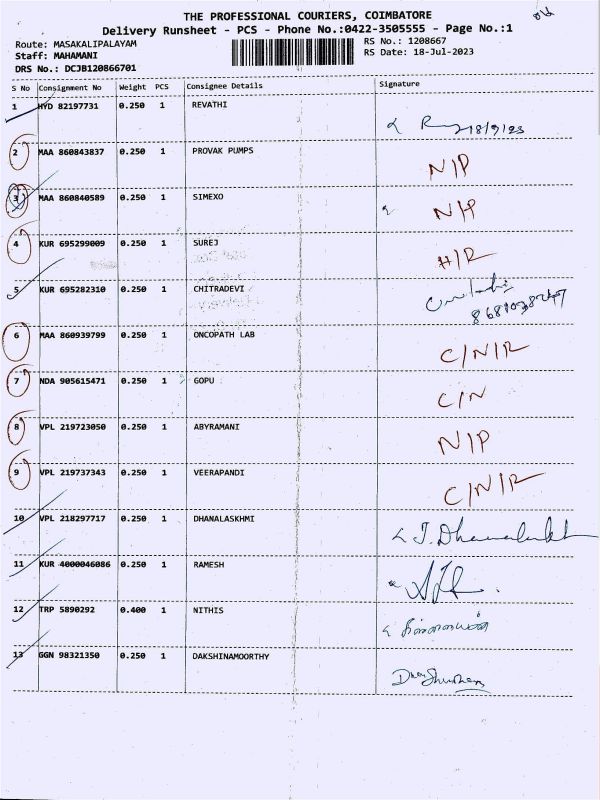 THE PROFESSIONAL COURIERS, COIMBATORE
Delivery Runsheet - PCS - Phone No.:0422-3505555 - Page No.:1
Route: MASAKALIPALAYAM
RS No.: 1208667
Staff: MAHAMANI
RS Date: 18-Jul-2023
DRS No.: DCJB120866701
S No Consignment No Weight PCS Consignee Details Signature
1 HYD 82197731 0.250 1 REVATHI
2 MAA 860843837 0.250 1 PROVAK PUMPS N/P
3 MAA 860840589 0.250 1 SIMEXO N/P
4 KUR 695299009 0.250 1 SUREJ H/R
5 KUR 695282310 0.250 1 CHITRADEVI
6 MAA 860939799 0.250 1 ONCOPATH LAB C/N/R
7 NDA 905615471 0.250 1 GOPU C/N
8 VPL 219723050 0.250 1 ABYRAMANI N/P
9 VPL 219737343 0.250 1 VEERAPANDI C/N/R
10 VPL 218297717 0.250 1 DHANALASKHMI
11 KUR 4000046086 0.250 1 RAMESH
12 TRP 5890292 0.400 1 NITHIS
13 GGN 98321350 0.250 1 DAKSHINAMOORTHY